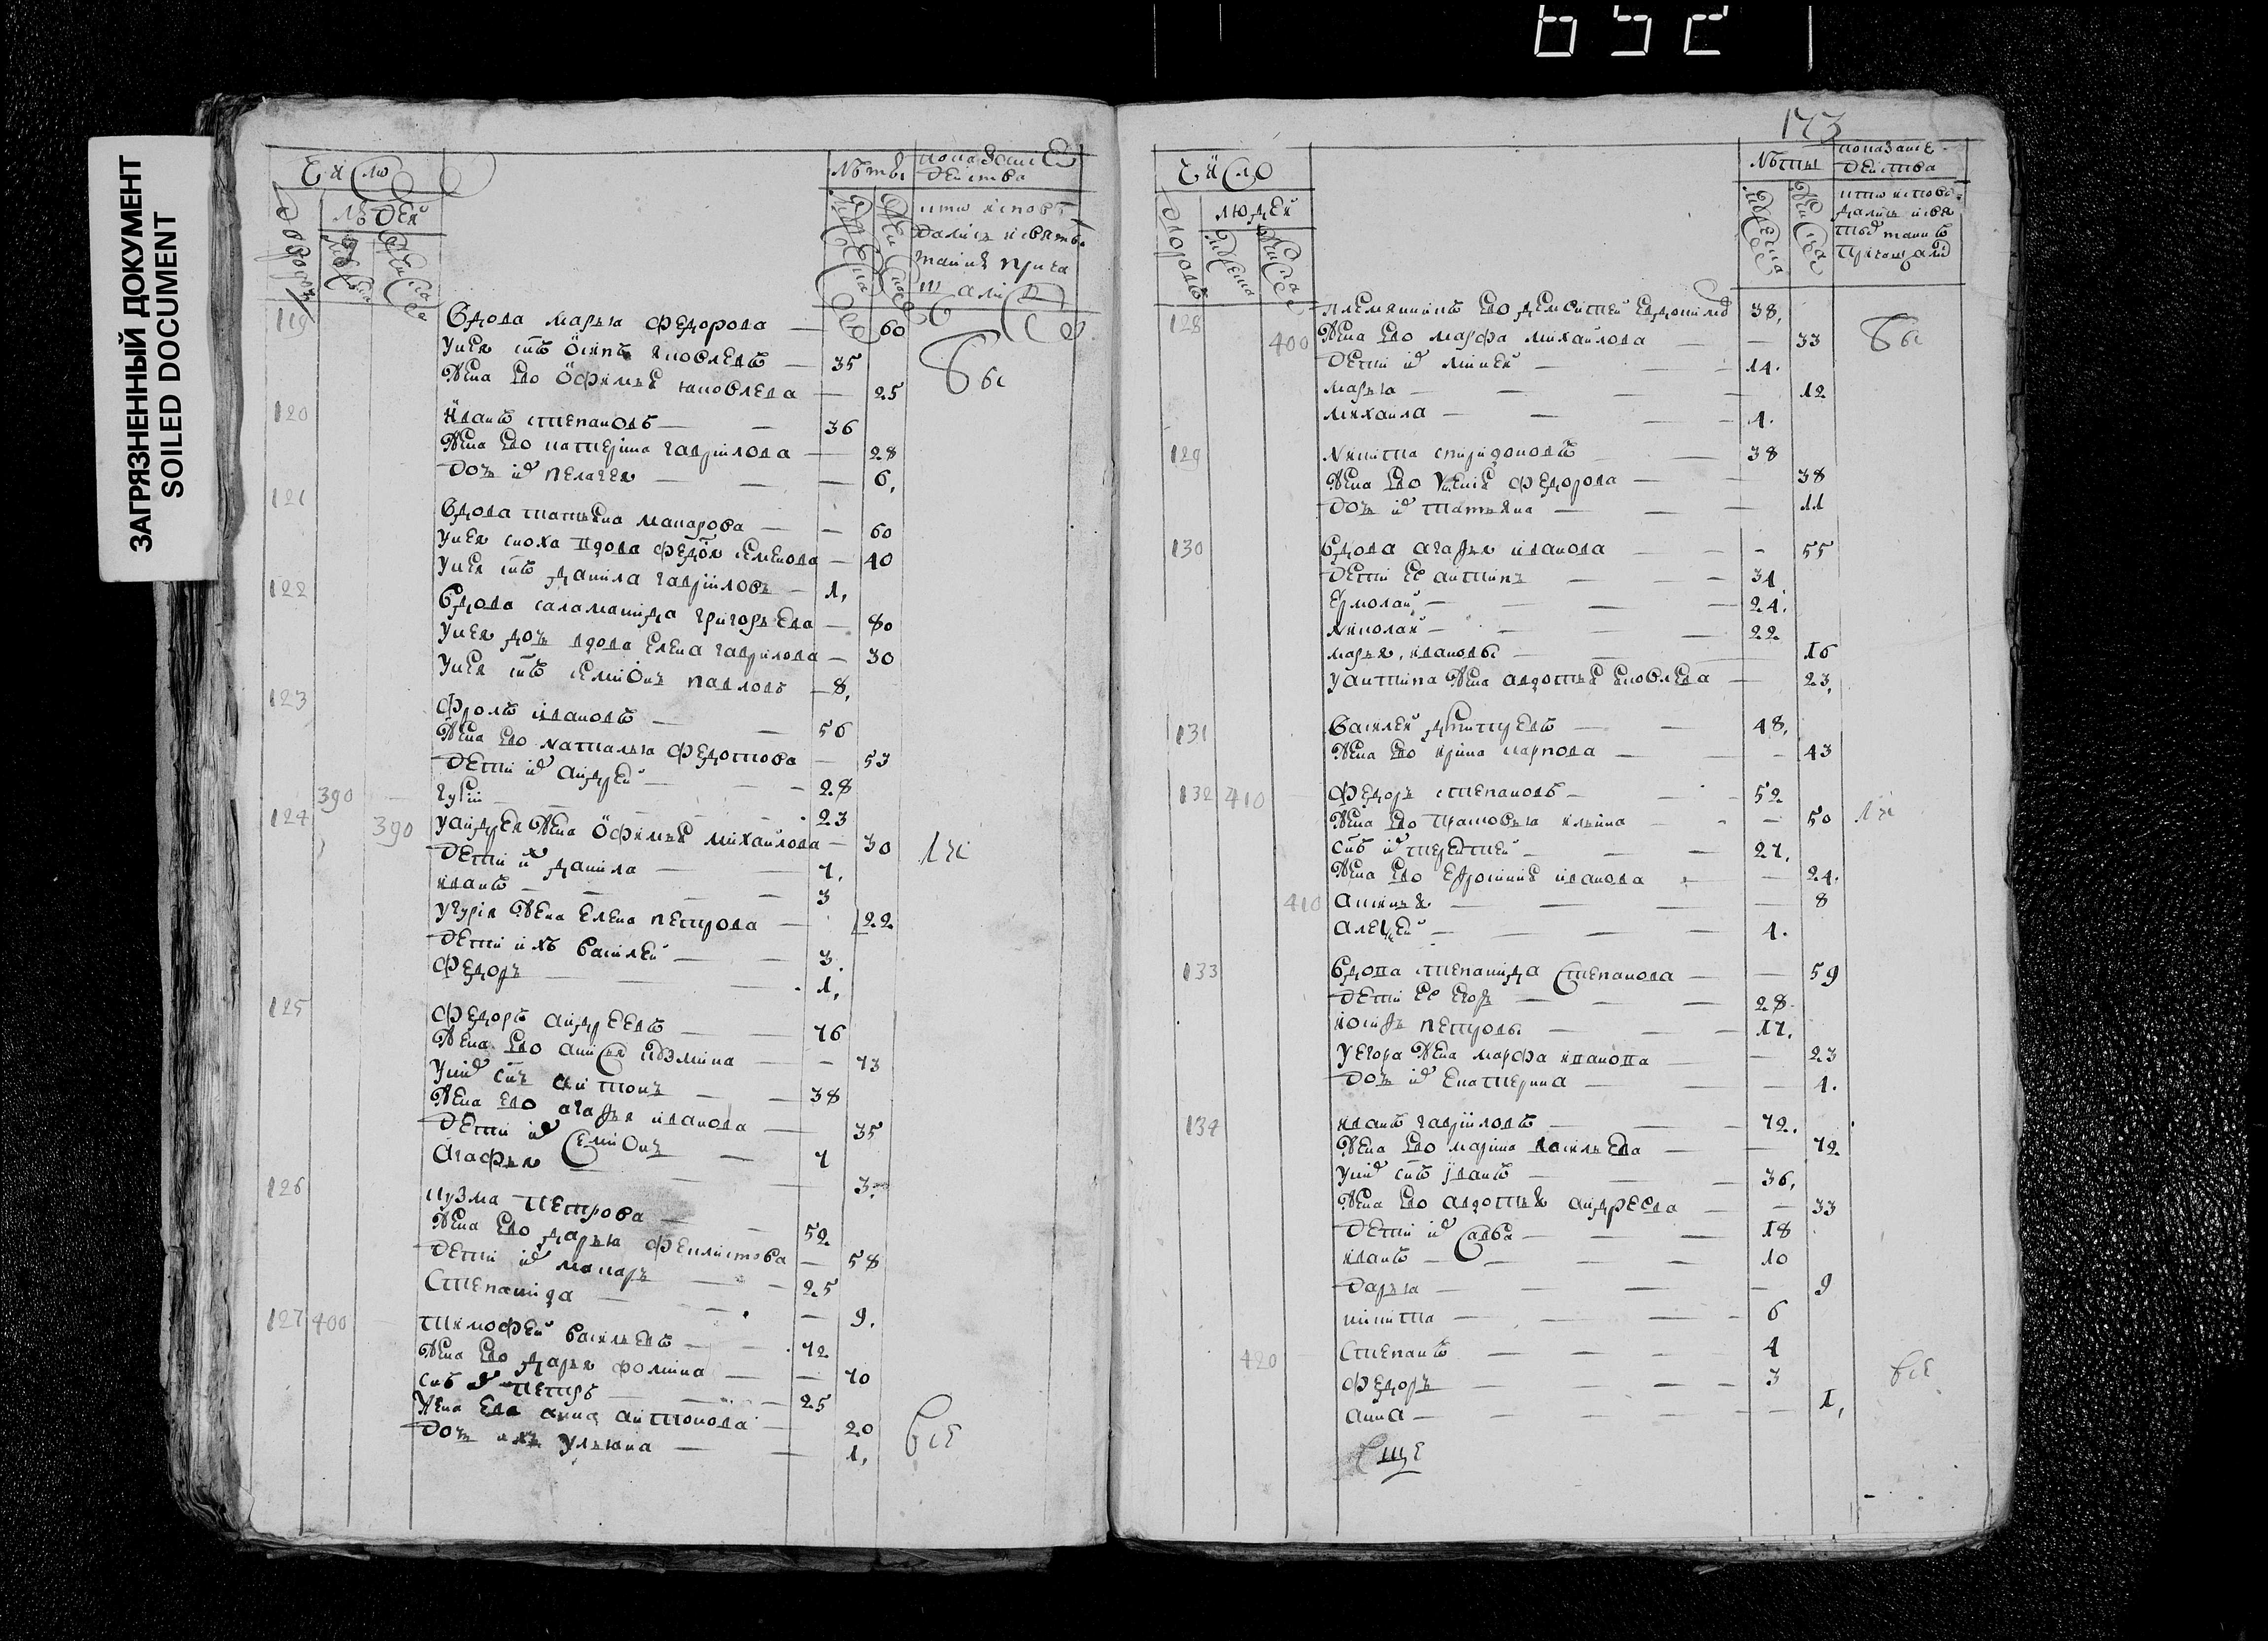 652
ЗАГРЯЗНЕННЫЙ ДОКУМЕНТ
SOILED DOCUMENT
Число
лѣта показание действа
людей
119 Вдова марья федорова — 60
У нея снъ Осипъ яковлевъ — 35
Жена ево Офимья яковлева — 25
120 Иванъ степановъ — 36
Жена ево катерина гаврилова — 28
дочь их пелагея — 6
121 Вдова татьяна макарова — 60
У нея сноха вдова федося семенова — 40
У нея снъ данила гавриловъ — 1
122 Вдова саламанида григорьева — 80
У нея дочь вдова елена гаврилова — 30
У нея снъ семионъ павловъ — 8
123 Фролъ ивановъ — 56
Жена ево наталья федотова — 53
дети их андрей — 28
390 гурий — 23
124 390 у андрея жена Офимья михайлова — 30
дети их данила — 7
иванъ — 3
у гурия жена елена петрова — 22
дети ихъ василей — 3
федоръ — 1
125 федоръ андреевъ — 76
Жена ево анисья — 73
У них снъ антонъ — 38
Жена ево агафья иванова — 35
дети их семионъ — 7
агафья — 3
126 кузма петрова — 59
Жена ево дарья феклистова — 58
дети их макаръ — 25
степанида — 9
127 400 тимофей васильевъ — 72
Жена ево дарья фомина — 70
снъ их петръ — 25
Жена ево анна антонова — 20
дочь ихъ ульяна — 1
все
173
Число
лѣты показание действа
людей
128 племянникъ ево дементей евдокимов 38
400 Жена ево марфа михайлова — 33
дети их миней — 14
марья — 12
михайла — 1
129 никита спиридоновъ — 38
Жена ево ксения федорова — 38
дочь их татьяна — 11
130 Вдова агафья иванова — 55
дети ее антипъ — 31
ермолай — 24
николай — 22
марья, ивановы — 16
у антипа жена авдотья яковлева — 23
131 Василей дмитриевъ — 48
Жена ево ирина карпова — 43
132 410 федоръ степановъ — 52
Жена ево прасковья ильина — 50
снъ их терентей — 27
Жена ево ефросиния иванова — 24
410 анисья — 8
алексей — 1
133 Вдова степанида степанова — 59
дети ее егоръ — 28
иосифъ петровы — 17
у егора жена марфа иванова — 23
дочь их екатерина — 1
134 иванъ гавриловъ — 72
Жена ево марина васильева — 72
у них снъ иванъ — 36
Жена ево авдотья андреева — 33
дети их савва — 18
иванъ — 10
дарья — 9
никита — 6
степанъ — 4
420 федоръ — 3
анна — 1
все